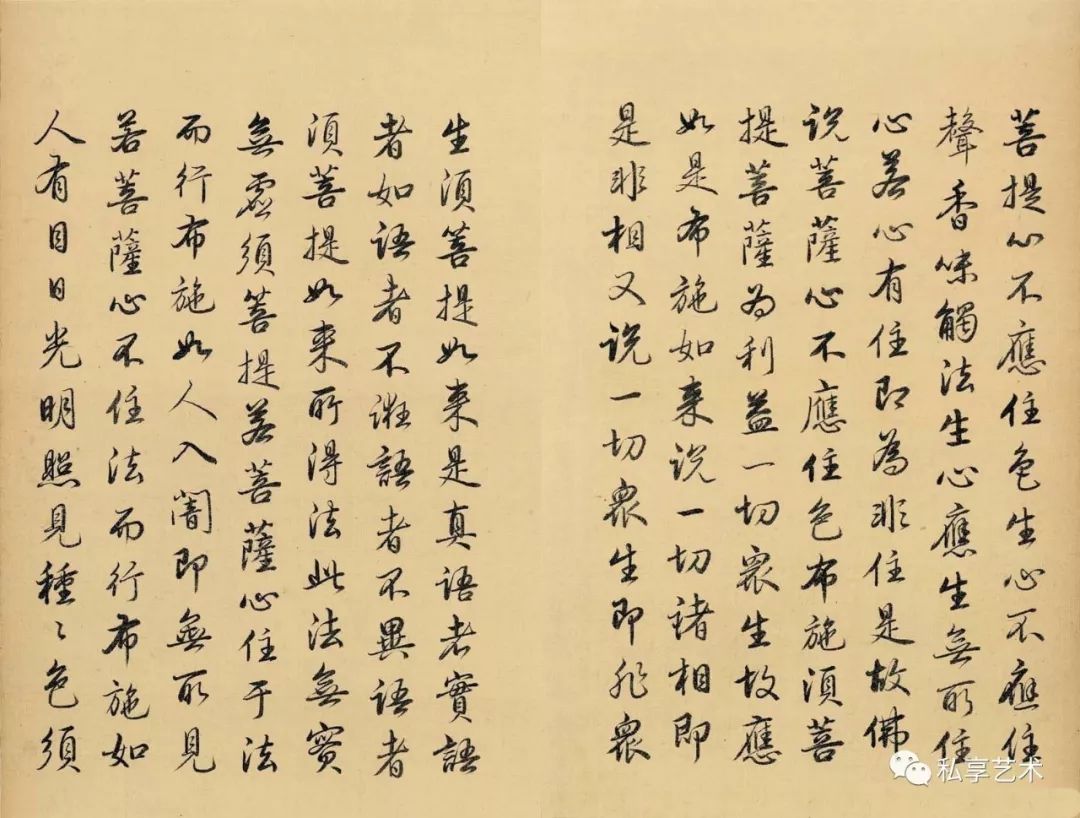 菩提心不應住色生心不應住
聲香味觸法生心應生無所住
心若心有住即為非住是故佛
説菩薩心不應住色布施須菩
提菩薩為利益一切衆生故應
如是布施如来說一切諸相即
是非相又說一切衆生即非衆
生須菩提如来是真語者實語
者如語者不誑語者不異語者
須菩提如来所得法此法無實
無虛須菩提若菩薩心住于法
而行布施如人入闇即無所見
若菩薩心不住法而行布施如
人有目日光明照見種〻色須
私享艺术